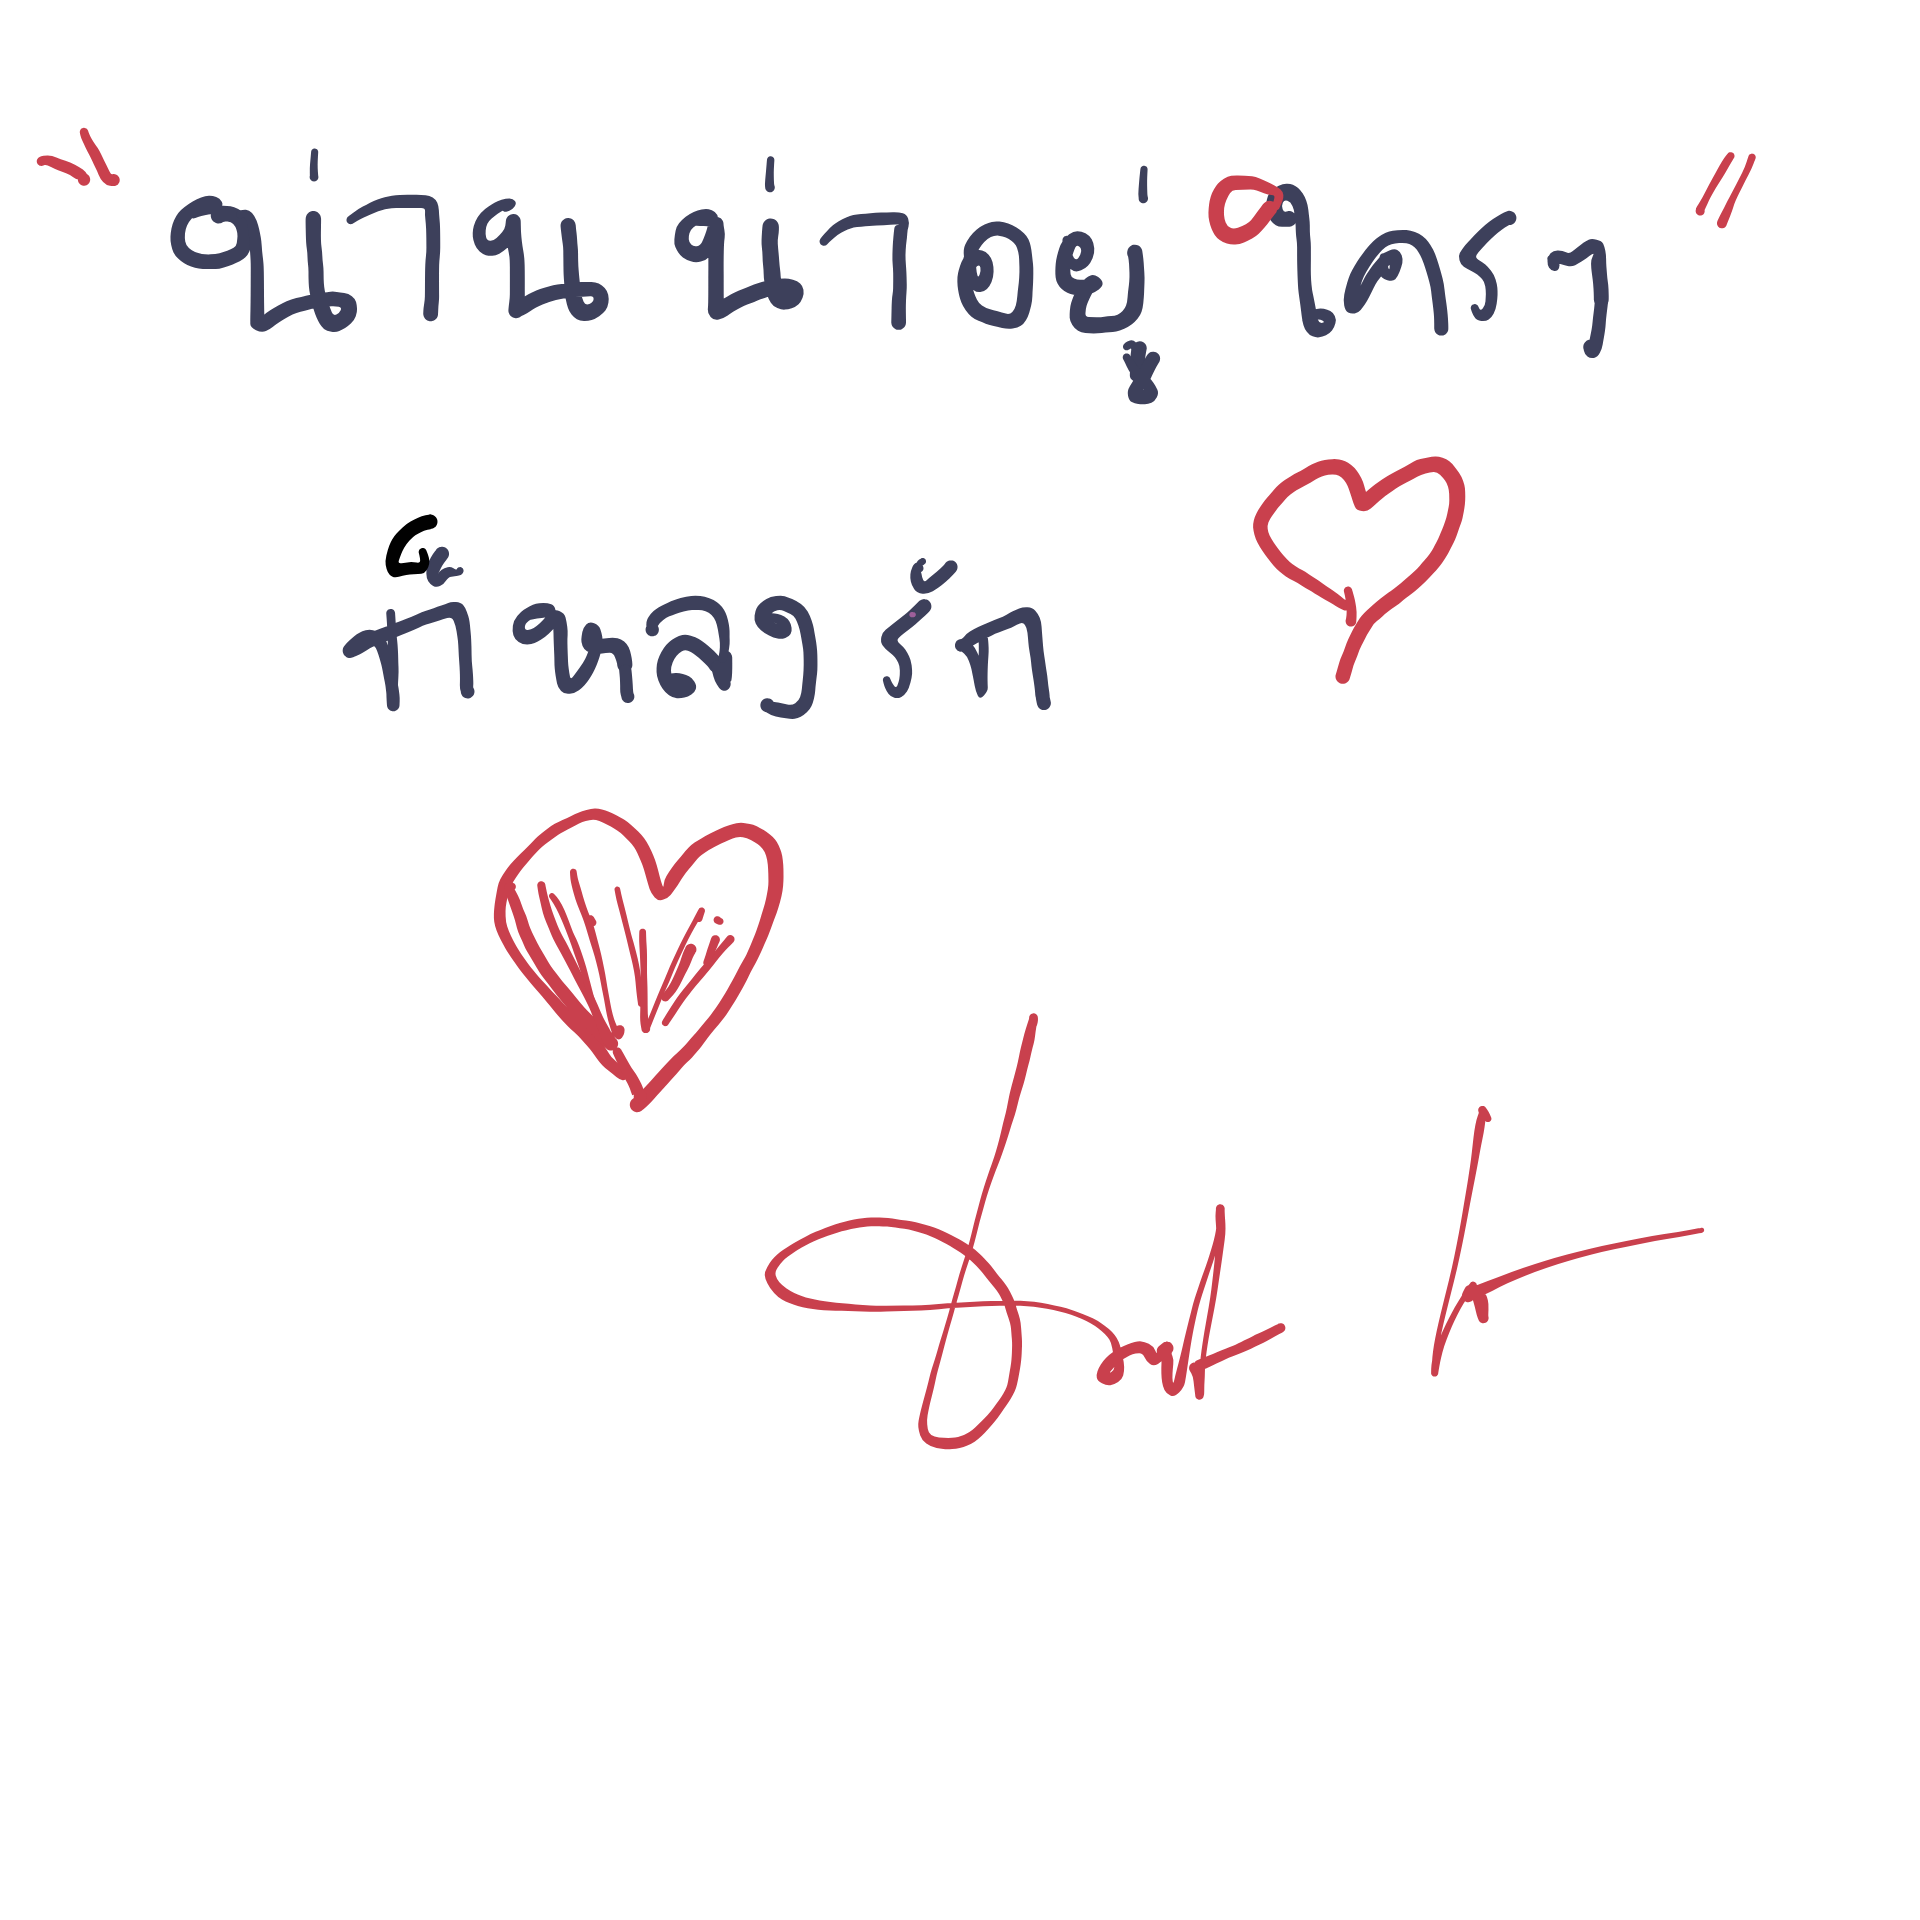 "น่าน น่าอยู่ ใครๆ"
ก็หลงรัก